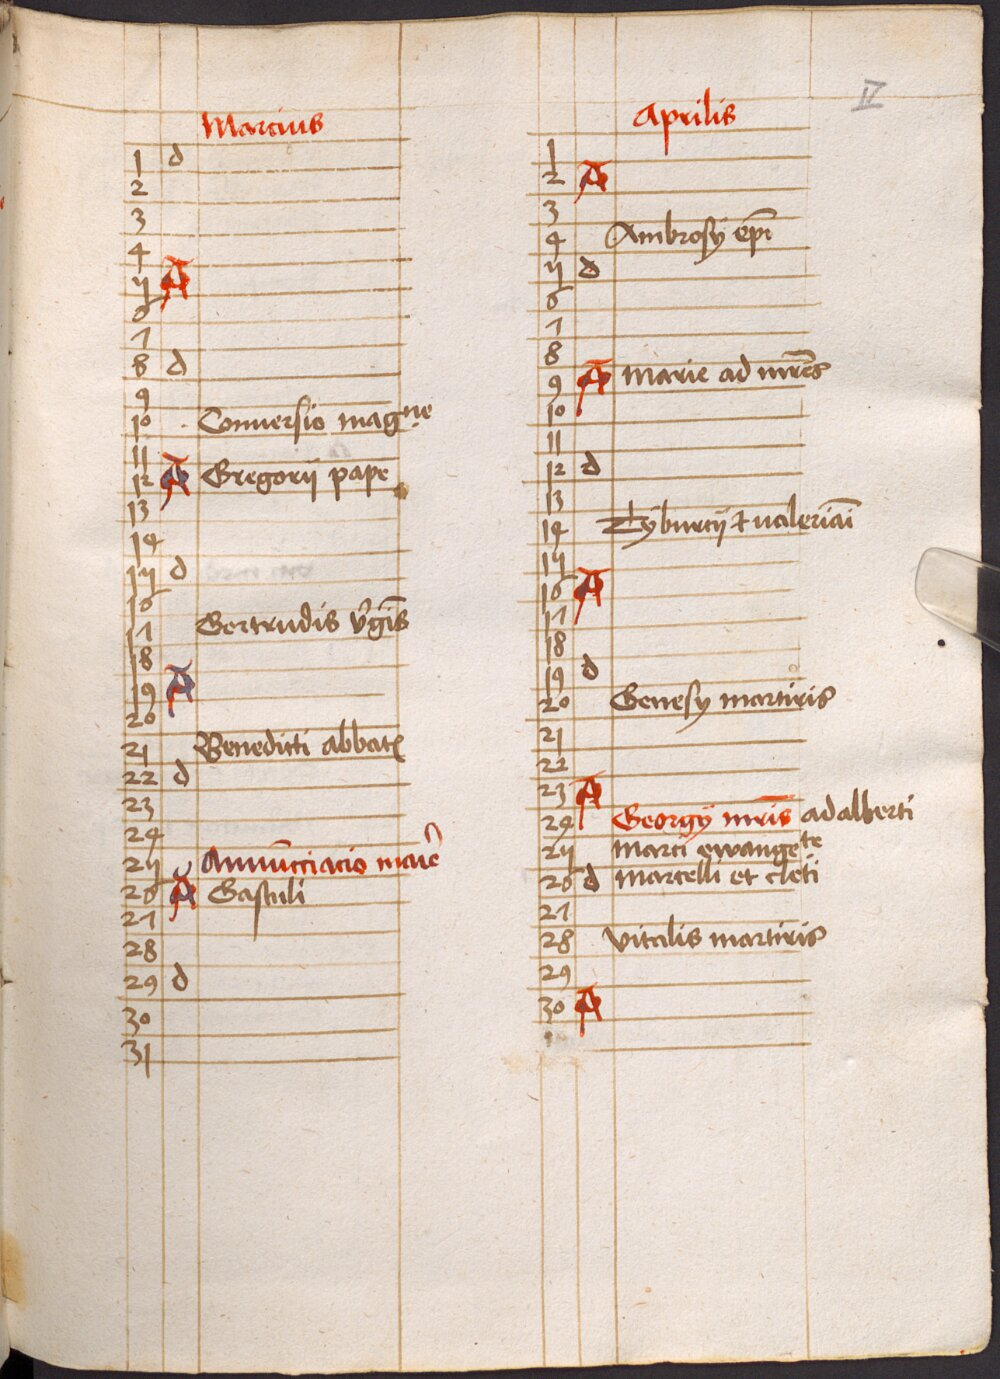 IV
Marcius
1 d
2
3
4
5 A
6
7
8 d
9
10 Conuersio magne
11
12 A Gregorij pape
13
14
15 d
16
17 Gertrudis v̓gīs
18
19 A
20
21 Benedicti abbatꝭ
22 d
23
24
25 Annūcciacio marie
26 A Castuli
27
28
29 d
30
31
Aprilis
1
2 A
3
4 Ambrosÿ ep̄i
5 d
6
7
8
9 A Marie ad mr̄es
10
11
12 d
13
14 Tÿburcij et valeriāi
15
16 A
17
18
19 d
20 Genesÿ martiris
21
22
23 A
24 Georgÿ mr̄is adalberti
25 Marci ewangeᵗᵉ
26 d Marcelli et cleti
27
28 Vitalis martiris
29
30 A